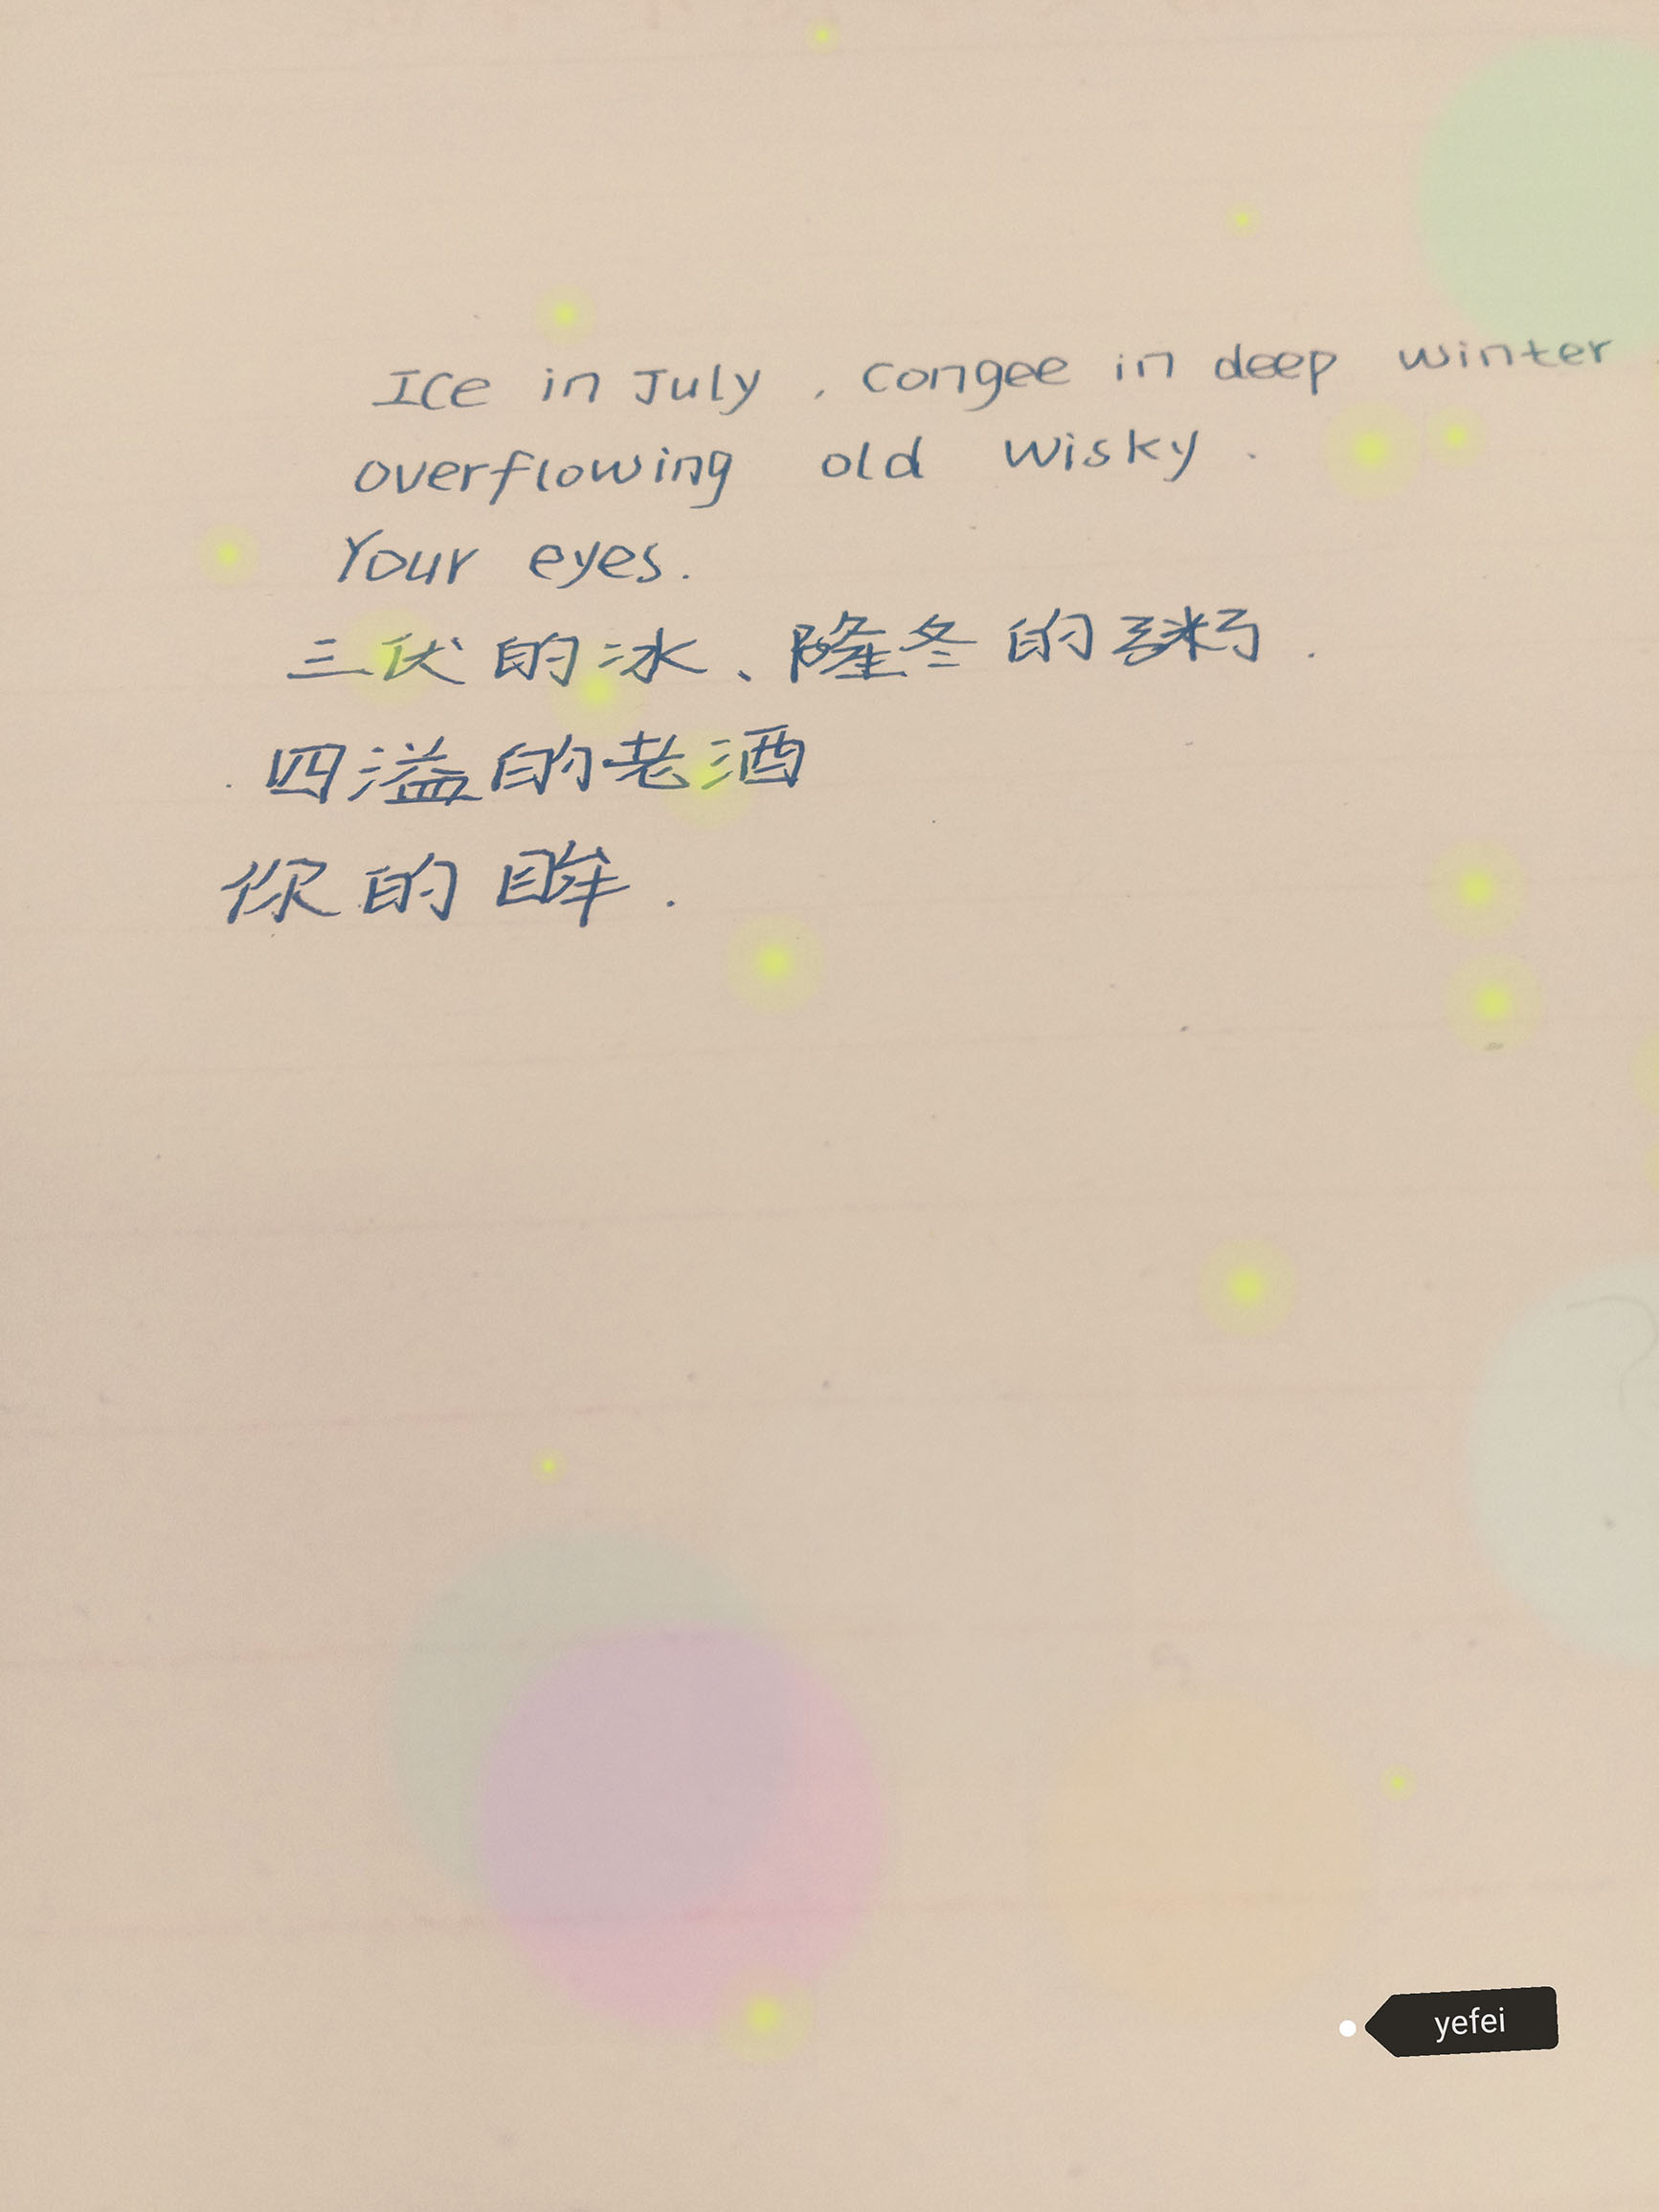 Ice in July , congee in deep winter .
overflowing old wisky .
Your eyes.
三伏的冰、隆冬的粥.
四溢的老酒
你的眸.
yefei